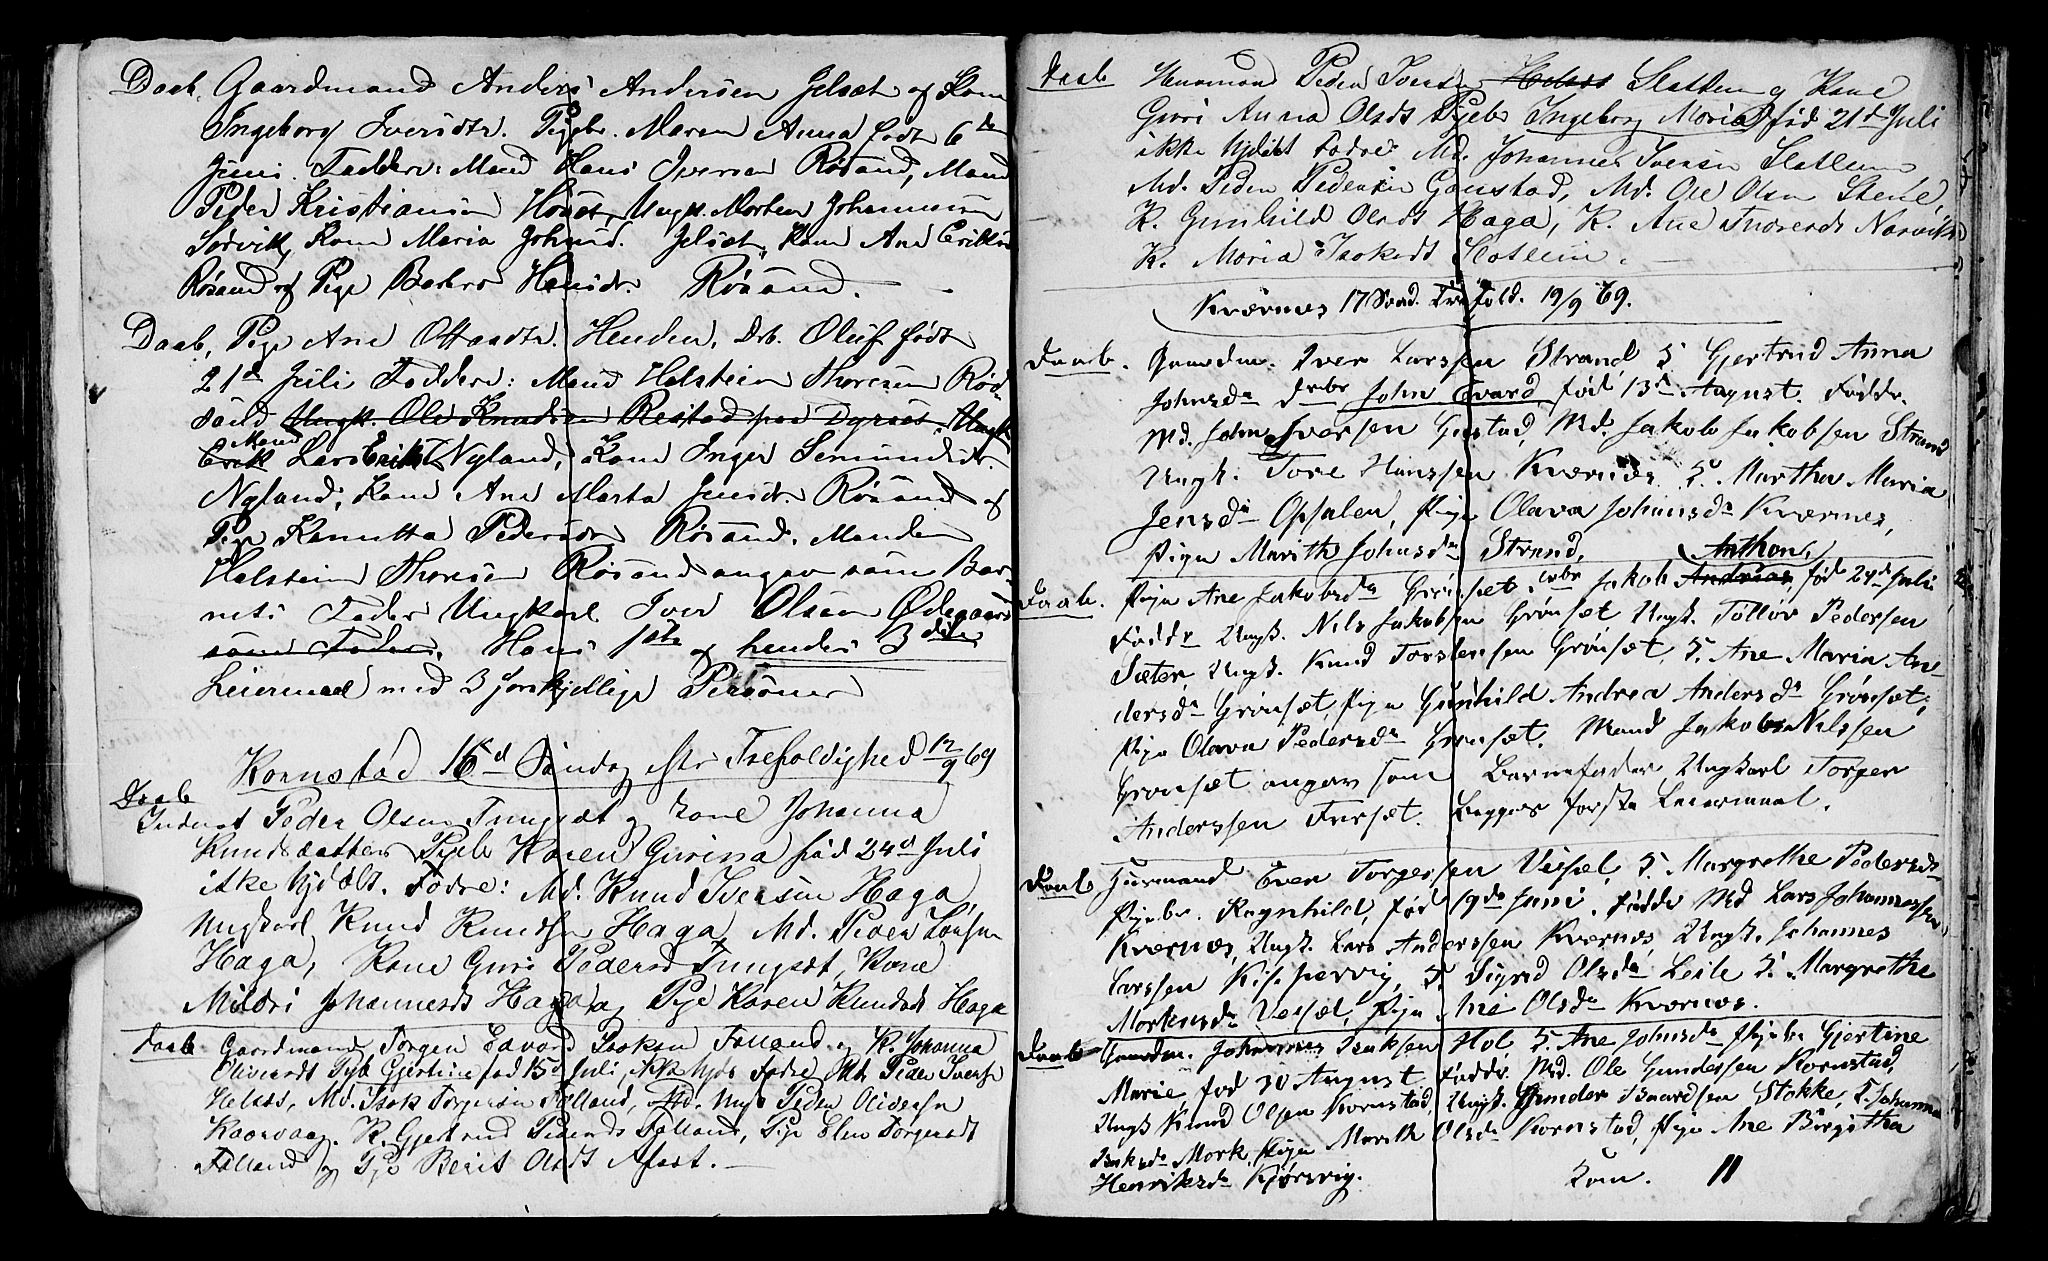 Daab, Gaardmand Anders Andersen Gelsæt og Kone
Ingeborg Iversdtr. Pigebr. Maren Anna født 6 de
Juni. Faddere: Mand Hans Iversen Røsand, Mand
Peder Kristiansen Ungk. Morten Johannesen
Sørvik, Kone Maria Johnsd. Gelsæt, Kone Ane Eriksd
Røsand og Pige Hansdr. Røsand.
Daab, Pige Ane Henden, Drb. Oluf født
21de Juli Faddere: Mand Halstein Thoresen Rød-
sand Ungk. Ole Knudsen Reistad paa Ungk
Mand
Erik Lars Eriks Nyland, Kone Inger Semundsdr.
Nyland, Kone Ane Marta Jensdr. Røsand og
Pige Kanutta Pedersdr Røsand. Manden
Halstein Thoresen Røsand angav som Bar-
nets Fader Ungkarl Iver Olsen Ødegaard
som Fader. Hans 1ste og hendes 3die
Leiermaal med 3 forskjellige Personer
Kornstad 16d Søndag eftr Trefoldighed 12/9 69
Daab
Inderst Peder Olsen Tungsæt og Kone Johanna
Knudsdatter Pigeb Karen Gurina fød 24d Juli
ikke hjdøbt. Fadre: Md. Knud Iversen Haga,
Ungkarl Knud Knudsen Haga, Md. Peder Larsen
Haga, Kone Guri Pedersd Tungsæt, Kone
Mildri Johannesdt Haga og Pige Karen Knudsdt Haga
Daab Gaardmand Torger Edvard Isaksen Følland og K. Johanna
Oliversdt Pigb Gjertine fød 15d Juli, ikke hjdø Fadre Md. Peder Iversen
Helsøs, Md. Isak Torgersen Følland, Md. Ungk Peder Oliversen
Kaarvaag. K. Gjertrud Pedersdt Følland, Pige Elen Torgersdt
Følland og Pige Berit Olsdt
Daab Huusmand Peder Iversen Helsøs Slatlem og Kone
Guri Anna Olsdt Pigebr Ingeborg Maria fød 21d Juli
ikke hjdøbt Fadre Md. Johannes Iversen Slatlem
Md. Peder Pedersen Md. Ole Olsen Stene,
K. Gunhild Olsdt Haga, K. Ane Norvik
K. Maria Isaksdt Slatlem.
Kværnes 17 Sønd. Trefold. 19/9 69.
Daab. Gaardm. Iver Larssen Strand, H. Gjertrud Anna
Johnsdr drbr John Evard, fød 13d August. Faddr.
Md. John Iversen Gustad, Md. Jakob Jakobsen Strand
Ungk. Tore Hanssen Kværnæs. H. Martha Maria
Jensdr Opsalen, Pige Olava Johansdr Kværnes,
Pige Marith Johnsdr Strand.
Anthon,
Daab. Pige Ane Jakobsdr Grønset. drbr Jakob Andreas, fød 24d Juli
Faddr Ungk. Nils Jakobsen Grønsæt Ungk. Tollev Pedersen
Sæter, Ungk. Knud Torstensen Grønsæt, H. Ane Maria An-
dersdr Grønsæt, Pige Gunhild Andrea Andersdr Grønsæt,
Pige Olava Pedersdr Grønsæt. Mand Jakob Nilssen
Grønsæt angav som Barnefader, Ungkarl Torger
Anderssen Fursæt. Begges første Leiermaal.
Daab Huusmand Even Torgersen Veisæt, H. Margrethe Pedersdr
Pigebr. Ragnhild, fød 19de Juni, faddr Md Lars Johannessen
Kværnes, Ungk. Lars Anderssen Kværnæs, Ungk. Johannes
Larssen H. Sigrid Olsdr Leite H. Margrethe
Veisæt, Pige Ane Olsdr Kværnæs.
Daab Gaardm. Johannes Isaksen Hol H. Ane Johnsdr Pigebr Gjertine
Marie fød 30 August faddr. Md. Ole Gundersen Kornstad,
Ungk Knud Olsen Kornstad, Ungk. Gunder Baardsen Stokke, H. Johanna
Isaksdr Mork, Pige Marith Olsdr Kornstad, Pige Ane Birgitha
Henriksdr Kjørsvig. Kom. 11